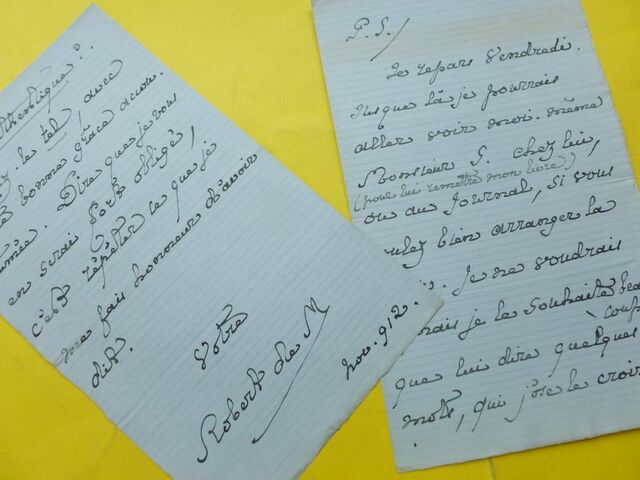 thentique :
le tel, avec
bonne grâce accou-
tumée. Dire que je vous
en serai fort obligé,
c'est répéter ce que je
me fais honneur d'avoir
dit.
Votre
Robert de M
nov. 912.
P. S. /
Je repars Vendredi.
Jusque là je pourrais
aller voir moi-même
Monsieur S. chez lui,
(pour lui remettre mon livre)
ou au Journal, si vous
voulez bien arranger la
Je ne voudrais
mais je le souhaite beau
coup
que lui dire quelques
mots, qui j'ose le croir